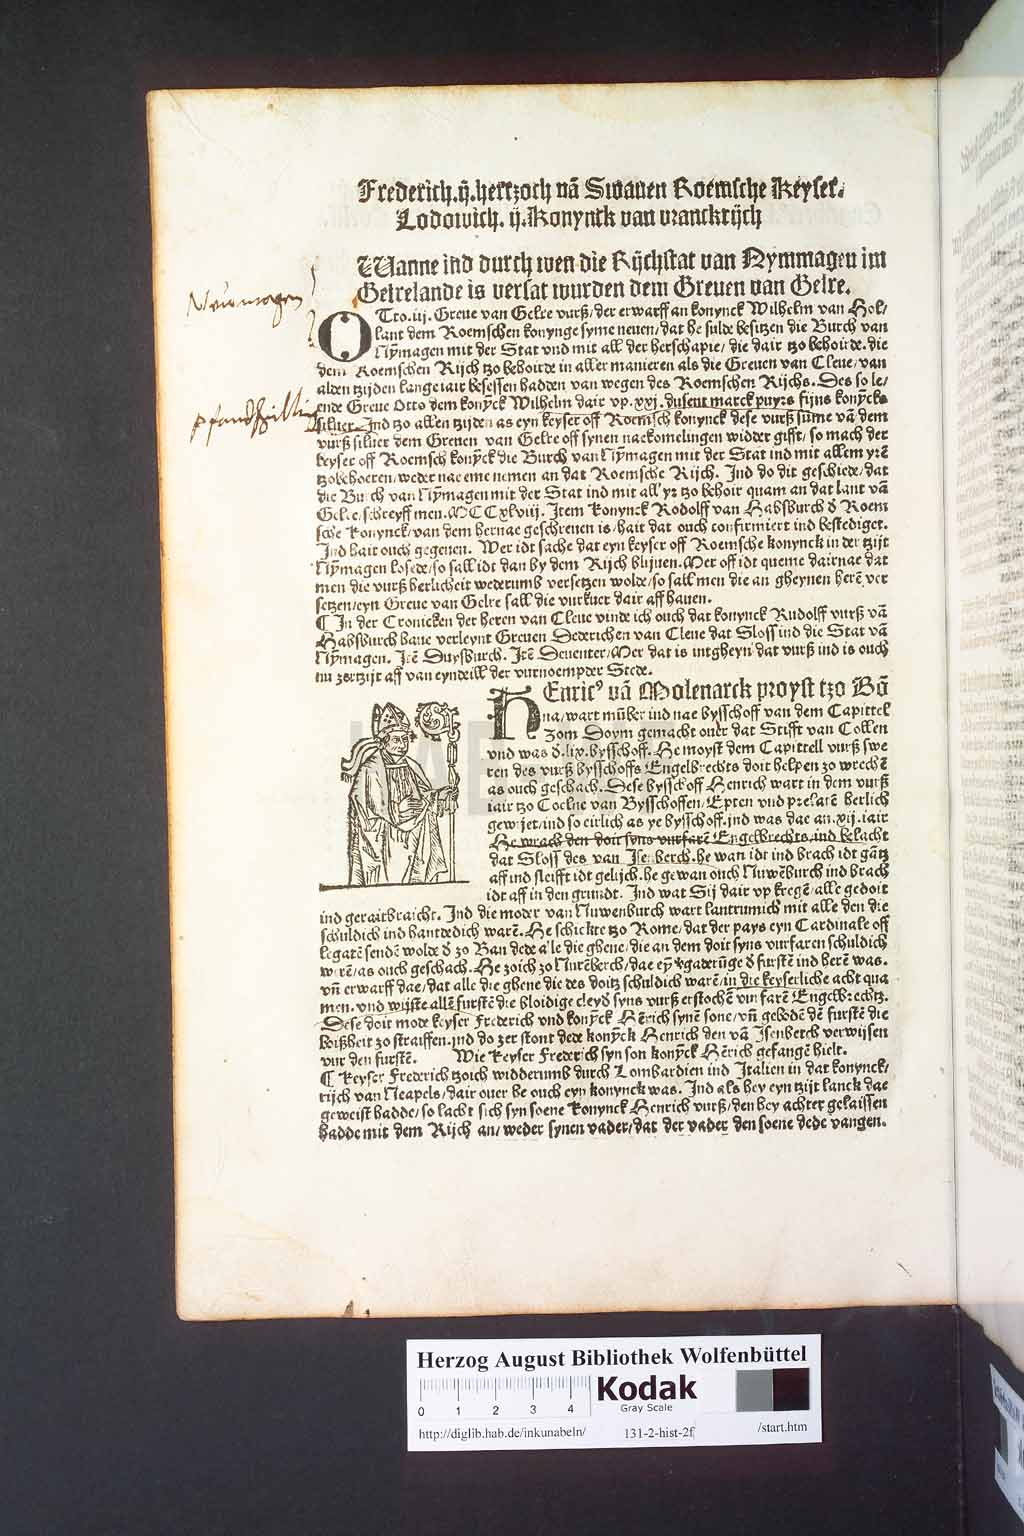 Frederich.ij.hertzoch vā Swauen Roemsche Keyser.
Lodowich.ij.Konynck van vranckrijch
Wanne ind durch wen die Rijchstat van Nymmagen im
Gelrelande is versat wurden dem Greuen van Gelre.
Neumagen
OTto.iij.Greue van Gelre vurß/der erwarff an konynck Wilhelm van Hol/
lant dem Roemschen konynge syme neuen/dat he sulde besitzen die Burch van
Nymagen mit der Stat vnd mit all der herschapie/die dair tzo behoirde.die
dem Roemschen Rijch tzo behoirde in aller manieren als die Greuen van Cleue/van
alden tzijden lange iair besessen hadden van wegen des Roemschen Rijchs. Des so le/
ende Greue Otto dem konyck Wilhelm dair vp.xxj.dusent marck puyrs fijns konycks
siluer. Ind tzo allen tzijden as eyn keyser off Roemsch konynck dese vurß sūme vā dem
vurß siluer dem Greuen van Gelre off synen nackomelingen widder gifft/so mach der
keyser off Roemsch konyck die Burch van Nymagen mit der Stat ind mit allem yrē
tzobehoeren/weder nae eme nemen an dat Roemsche Rijch. Ind do dit geschiede/dat
die Burch van Nymagen mit der Stat ind mit all yr tzo behoir quam an dat lant vā
Gelre/schreyff men.MCCxlviij. Item konynck Rodolff van Habsburch d Roem
sche konynck/van dem hernae geschreuen is/hait dat ouch confirmiert ind bestediget.
Ind hait ouch gegeuen. Wer idt sache dat eyn keyser off Roemsche konynck in der tzijt
Nymagen losede/so sall idt dan by dem Rijch blijuen.Mer off idt queme dairnae dat
men die vurß herlicheit wederumb versetzen wolde/so sall men die an gheynen herē ver
setzen/eyn Greue van Gelre sall die vurkuer dair aff hauen.
¶ In der Cronicken der heren van Cleue vinde ich ouch dat konynck Rudolff vurß vā
Habsburch haue verleynt Greuen Dederichen van Cleue dat Sloss ind die Stat vā
Nymagen. Itē Duysburch. Itē Deuenter/Mer dat is intgheyn dat vurß ind is ouch
nu zertzijt aff van eyndeill der vurnoempder Stede.
HEnric⁹ vā Molenarck proyst tzo Bō
na/wart mūber ind nae bysschoff van dem Capittel
zom Doym gemacht ouer dat Stifft van Collen
vnd was d.lix.bysschoff. He moyst dem Capittell vurß swe
ren des vurß bysschoffs Engelbrechts doit helpen zo wrechē
as ouch geschach. Dese bysschoff Henrich wart in dem vurß
iair tzo Coelne van Bysschoffen/Epten vnd prelatē herlich
gewijet/ind so eirlich as ye bysschoff.ind was dae an.xij.iair
He wrach den doit syns vurfarē Engelbrechts.ind belacht
dat Sloss des van Isenberch.he wan idt ind brach idt gātz
aff ind sleifft idt gelijch.he gewan ouch Nuwēburch ind brach
idt aff in den grundt. Ind wat Sij dair vp kregē/alle gedoit
ind geraitbraicht. Ind die moder van Nuwenburch wart lantrumich mit alle den die
schuldich ind hantdedich warē. He schickte tzo Rome/dat der pays eyn Cardinale off
legatē sendē wolde d zo Ban dede alle die ghene/die an dem doit syns vurfaren schuldich
werē/as ouch geschach. He zoich zo Nurēberch/dae ey v'gaderūge d furstē ind herē was.
vn̄ erwarff dae/dat alle die ghene die des doitz schuldich warē/in die keyserliche acht qua
men. vnd wijste allē furstē die bloidige cleyd syns vurß erstochē vurfarē Engelbrechtz.
Dese doit mode keyser Frederich vnd konyck Hērich synē sone/vn̄ gebodē dē furstē die
boißheit zo straiffen.ind do zer stont dede konyck Henrich den vā Isenberch verwijsen
vur den furstē. Wie keyser Frederich syn son konyck Hērich gefangē hielt.
¶ Keyser Frederich tzoich widderumb durch Lombardien ind Italien in dat konynck/
rijch van Neapels/dair ouer he ouch eyn konynck was. Ind als hey eyn tzijt lanck dae
geweist hadde/so lacht sich syn soene konynck Henrich vurß/den hey achter gelaissen
hadde mit dem Rijch an/weder synen vader/dat der vader den soene dede vangen.
Herzog August Bibliothek Wolfenbüttel
0 1 2 3 4
Kodak
Gray Scale
http://diglib.hab.de/inkunabeln/ 131-2-hist-2f /start.htm